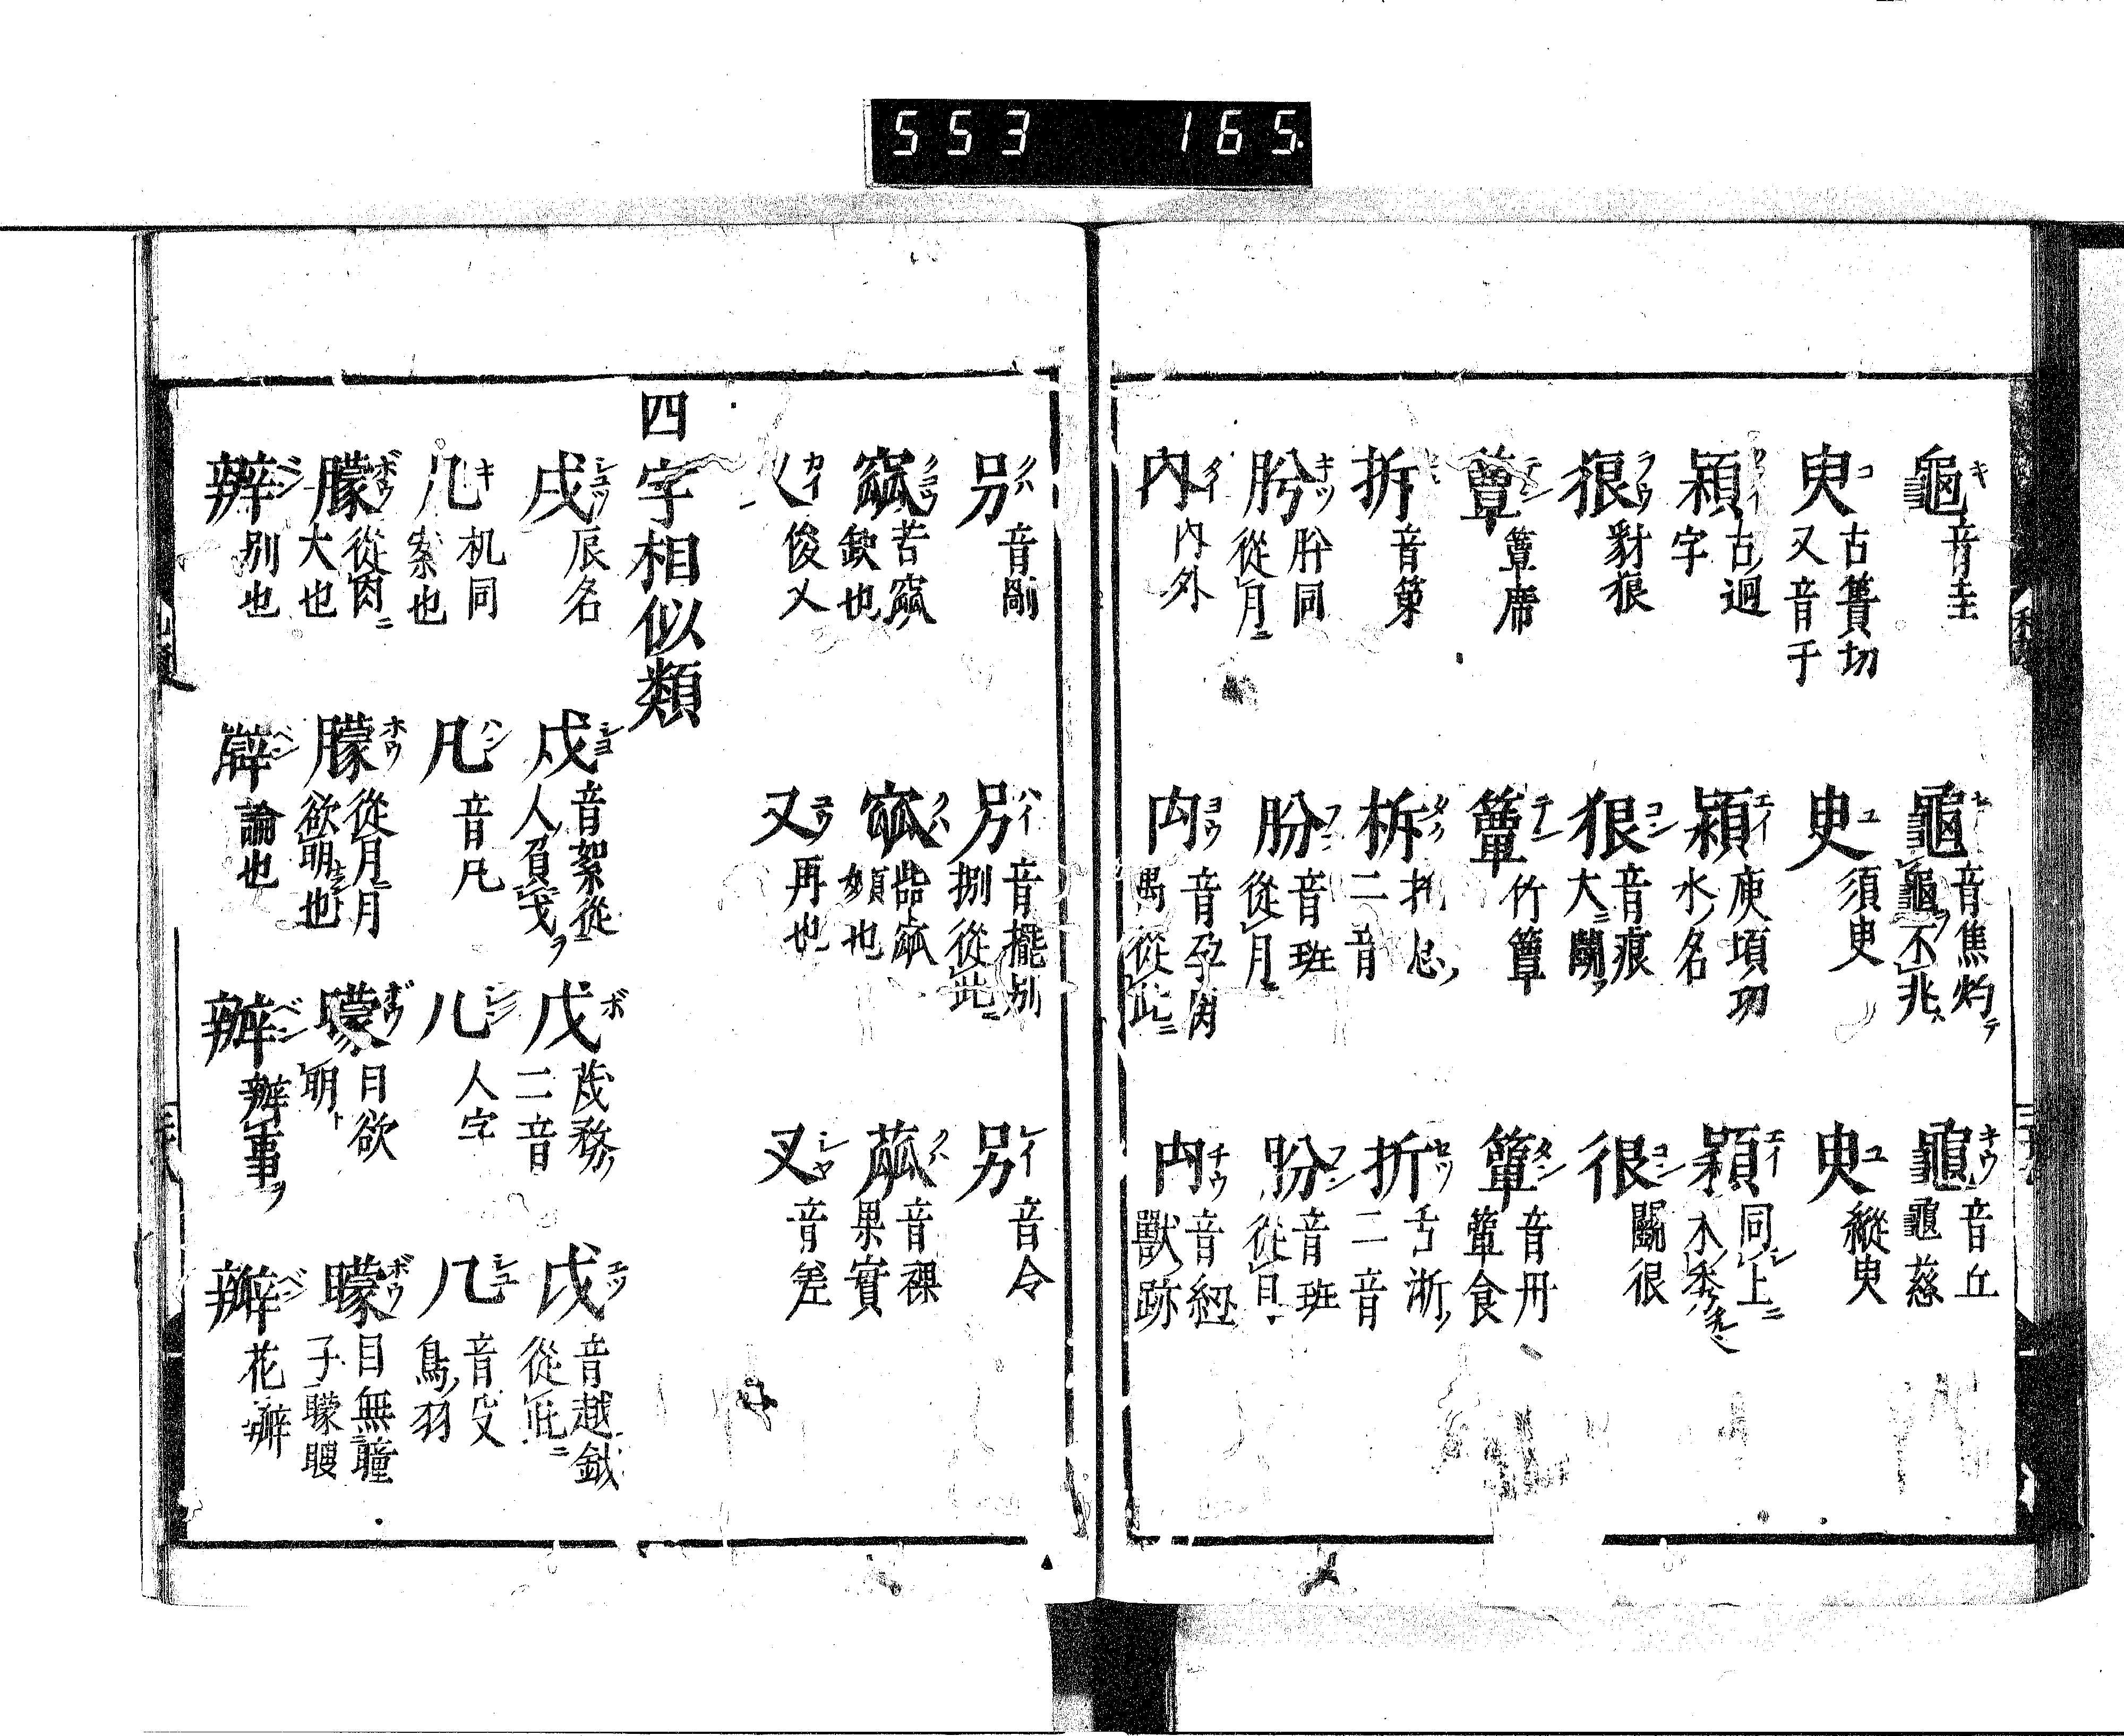 553 165
龜 キ 音圭
龜 音焦灼テ龜ヲ不兆
龜 キウ 音丘龜慈
臾 コ 古簣切又音于
史 ユ 須臾
臾 ユ 縱臾
潁 古迥字
潁 エイ 庾頃切水ノ名
穎 エイ 同上ニ木ノ秀
狼 ラウ 豺狼
狠 コン 音痕大ニ鬪
很 コン 鬪很
簟 テン 簟席
簟 テン 竹簟
簞 タン 音丹簞食
拆 音策
柝 タク 二音
折 セツ 舌淅ノ二音
肹 キツ 肸同從月ニ
肦 フン 音班從月ニ
盼 フン 音班從目
内 タイ 内外
禸 チウ 音紐獸跡
別 音剮
別 ハイ 音擺捌從此ニ
另 レイ 音令
窳 苦窳缺也
窳 呰窳嬾也
蓏 クハ 音裸果實
乂 カイ 俊乂
又 ユウ 再也
叉 シヤ 音差
四字相似類
戌 シユツ 辰名
戍 シヨ 音絮從人負戈ヲ
戊 ボ 茂務ノ二音
戉 エツ 音越鉞從此ニ
几 キ 机同案也
凡 ハン 音凡
儿 ジン 人字
几 シユ 音殳鳥ノ羽
朦 ボウ 從肉ニ大也
朦 ホウ 從月ニ月欲明也
曚 ボウ 日欲明ト
矇 ボウ 目無瞳子矇瞍
辨 ベン 別也
辯 ベン 論也
辦 ベン 辦事ヲ
瓣 ベン 花瓣